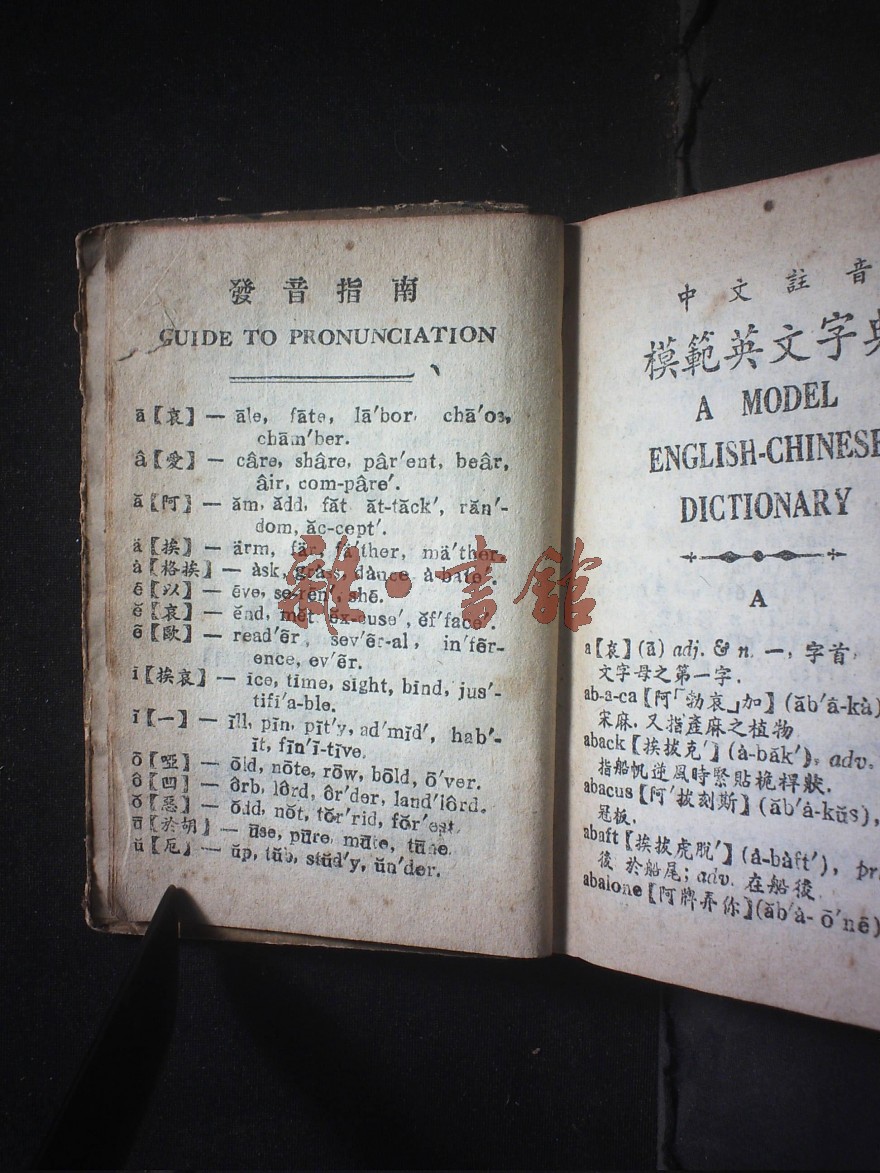 發音指南
GUIDE TO PRONUNCIATION
ā【哀】— āle, fāte, lā′bor, chā′os,
chām′ber.
â【愛】— câre, shâre, pâr′ent, beâr,
âir, com-pâre′.
ă【阿】— ăm, ădd, făt ăt-tăck′, răn′-
dom, ăc-cept′.
ä【挨】— ärm, fär, fä′ther, mä′ther.
ȧ【格挨】— ȧsk, grȧss, dȧnce, ȧ-bate′.
ē【以】— ēve, se-rēn′, shē.
ĕ【哀】— ĕnd, mĕt, ĕx-cuse′, ĕf′face′.
ẽ【歐】— read′ẽr, sev′ẽr-al, in′fẽr-
ence, ev′ẽr.
ī【挨哀】— īce, tīme, sīght, bīnd, jus′-
tifī′a-ble.
ĭ【一】— ĭll, pĭn, pĭt′y, ad′mĭd′, hab′-
ĭt, fĭn′ĭ-tĭve.
ō【啞】— ōld, nōte, rōw, bōld, ō′ver.
ô【凹】— ôrb, lôrd, ôr′der, land′lôrd.
ŏ【惡】— ŏdd, nŏt, tŏr′rid, fŏr′est.
ū【於胡】— ūse, pūre, mūte, tūne.
ŭ【厄】— ŭp, tŭb, stŭd′y, ŭn′der.
雜·書館
中文註音
模範英文字典
A MODEL
ENGLISH-CHINESE
DICTIONARY
A
a【哀】(ā) adj. & n. 一, 字首,
文字母之第一字.
ab-a-ca【阿「勃哀」加】(ăb′ȧ-kȧ)
宋麻, 又指產麻之植物.
aback【挨拔克′】(ȧ-băk′), adv.
指船帆逆風時緊貼桅桿狀.
abacus【阿′拔刻斯】(ăb′ȧ-kŭs),
冠板.
abaft【挨拔虎脫′】(ȧ-bȧft′), pr
後 於船尾; adv. 在船後.
abalone【阿牌弄你】(ăb′ȧ-ō′nē)